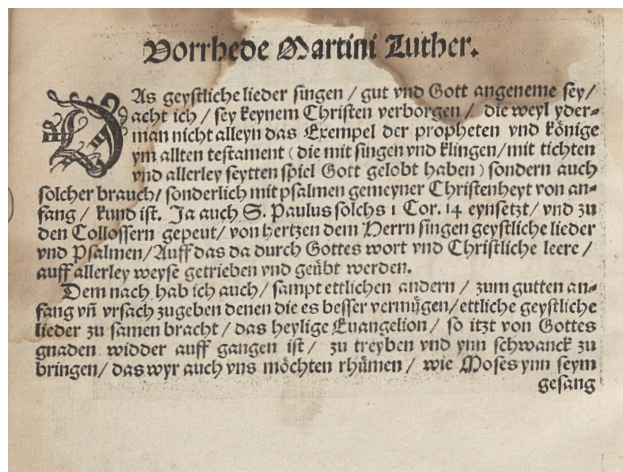 Vorrhede Martini Luther.
DAs geystliche lieder singen / gut vnd Gott angeneme sey /
acht ich / sey keynem Christen verborgen / die weyl yder⸗
man nicht alleyn das Exempel der propheten vnd könige
ym allten testament ( die mit singen vnd klingen / mit tichten
vnd allerley seytten spiel Gott gelobt haben ) sondern auch
solcher brauch / sonderlich mit psalmen gemeyner Christenheyt von an⸗
fang / kund ist. Ja auch S. Paulus solchs 1 Cor. 14 eynsetzt / vnd zu
den Collossern gepeut / von hertzen dem Herrn singen geystliche lieder
vnd Psalmen / Auff das da durch Gottes wort vnd Christliche leere /
auff allerley weyse getrieben vnd geübt werden.
Dem nach hab ich auch / sampt ettlichen andern / zum gutten an⸗
fang vn̄ vrsach zugeben denen die es besser vermügen / ettliche geystliche
lieder zu samen bracht / das heylige Euangelion / so itzt von Gottes
gnaden widder auff gangen ist / zu treyben vnd ynn schwanck zu
bringen / das wyr auch vns möchten rhümen / wie Moses ynn seym
gesang